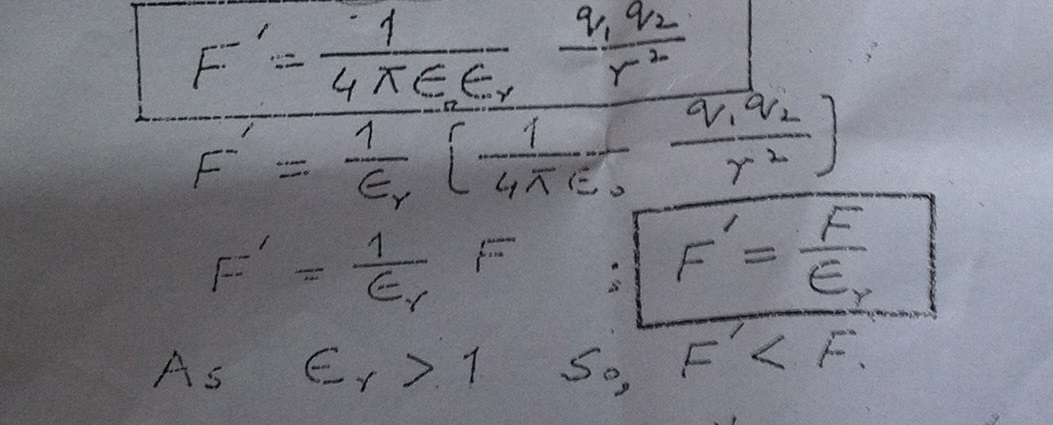 F' = 1/(4πϵ₀ϵᵣ) q₁q₂/r²
F' = 1/ϵᵣ [ 1/(4πϵ₀) q₁q₂/r² ]
F' = 1/ϵᵣ F ; F' = F/ϵᵣ
As ϵᵣ > 1 So, F' < F.